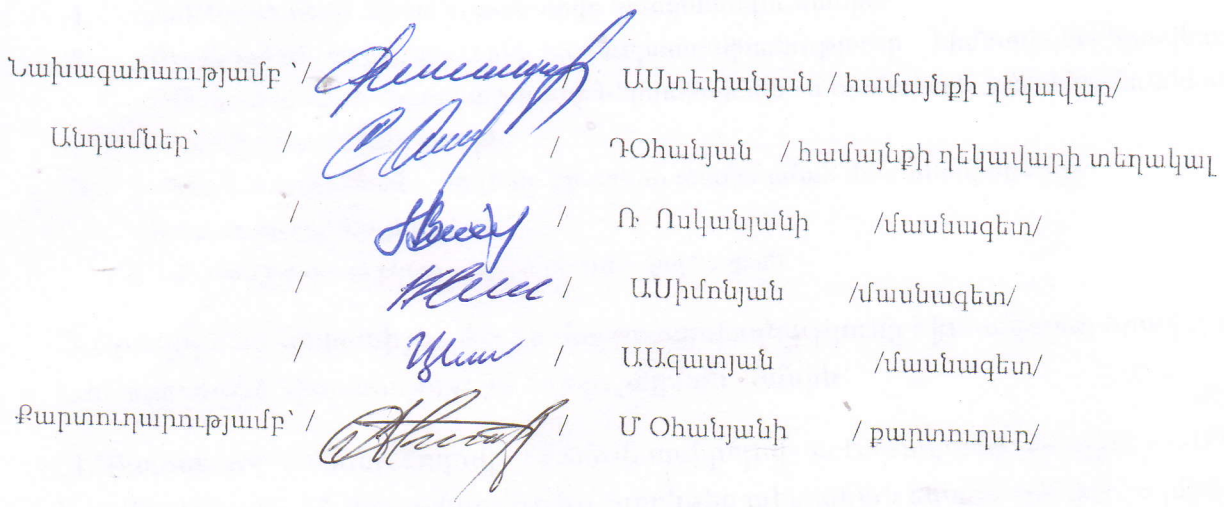 Նախագահաությամբ ՝ / / ԱՍտեփանյան / համայնքի ղեկավար/
Անդամներ՝ / / ԴՕհանյան / համայնքի ղեկավարի տեղակալ
/ / Ռ Ոսկանյանի /մասնագետ/
/ / ԱՍիմոնյան /մասնագետ/
/ / ԱԱզատյան /մասնագետ/
Քարտուղարությամբ՝ / / Մ Օհանյանի / քարտուղար/